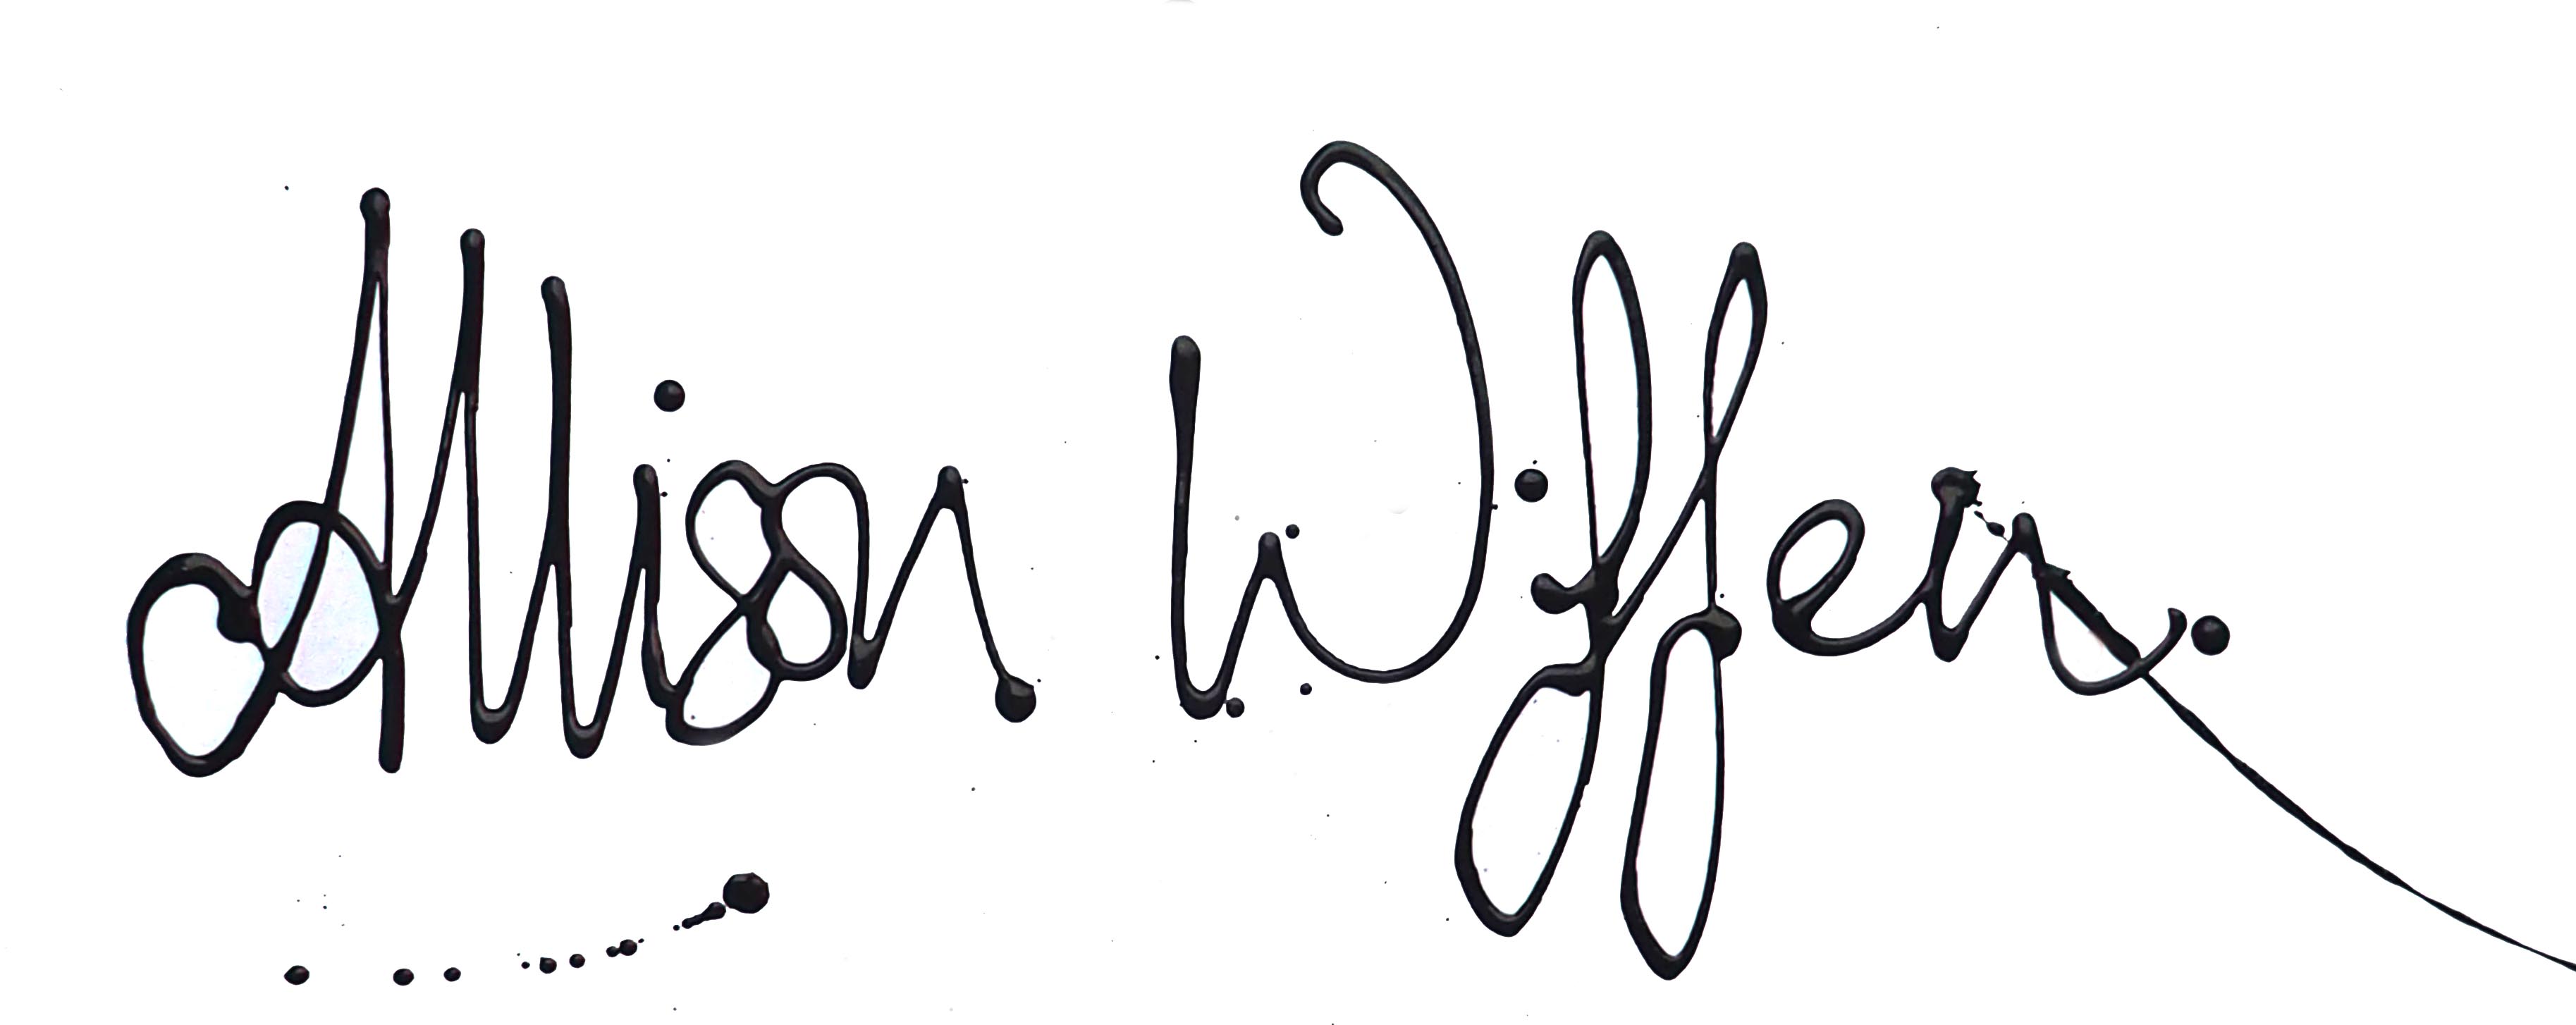 Allison Wiffen.